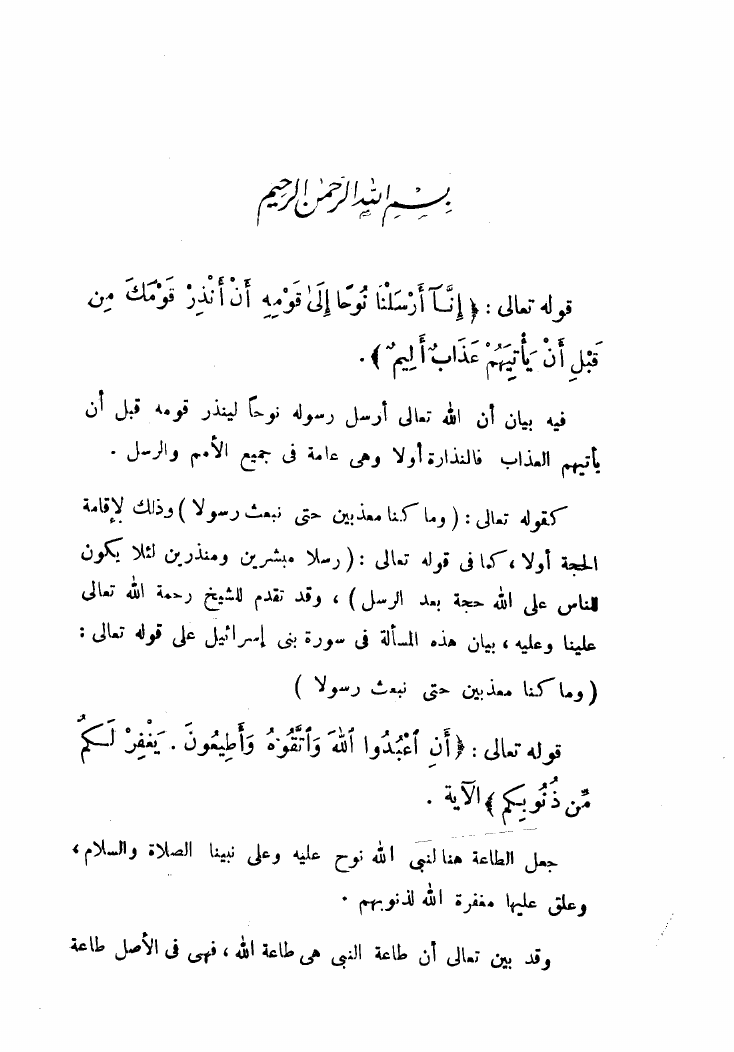 بسم الله الرحمن الرحيم
قوله تعالى : ﴿ إِنَّآ أَرْسَلْنَا نُوحًا إِلَىٰ قَوْمِهِ أَنْ أَنْذِرْ قَوْمَكَ مِن
قَبْلِ أَنْ يَأْتِيَهُمْ عَذَابٌ أَلِيمٌ ﴾ .
فيه بيان أن الله تعالى أرسل رسوله نوحاً لينذر قومه قبل أن
يأتيهم العذاب فالنذارة أولا وهى عامة فى جميع الأمم والرسل .
كقوله تعالى : ( وما كنا معذبين حتى نبعث رسولا ) وذلك لإقامة
الحجة أولا ، كما فى قوله تعالى : ( رسلا مبشرين ومنذرين لئلا يكون
للناس على الله حجة بعد الرسل ) ، وقد تقدم للشيخ رحمة الله تعالى
علينا وعليه ، بيان هذه المسألة فى سورة بنى إسرائيل على قوله تعالى :
( وما كنا معذبين حتى نبعث رسولا )
قوله تعالى : ﴿ أَنِ ٱعْبُدُوا ٱللَّهَ وَٱتَّقُوهُ وَأَطِيعُونَ . يَغْفِرْ لَكُمْ
مِّن ذُنُوبِكُمْ ﴾ الآية .
جعل الطاعة هنا لنبى الله نوح عليه وعلى نبينا الصلاة والسلام ،
وعلق عليها مغفرة الله لذنوبهم .
وقد بين تعالى أن طاعة النبى هى طاعة الله ، فهى فى الأصل طاعة